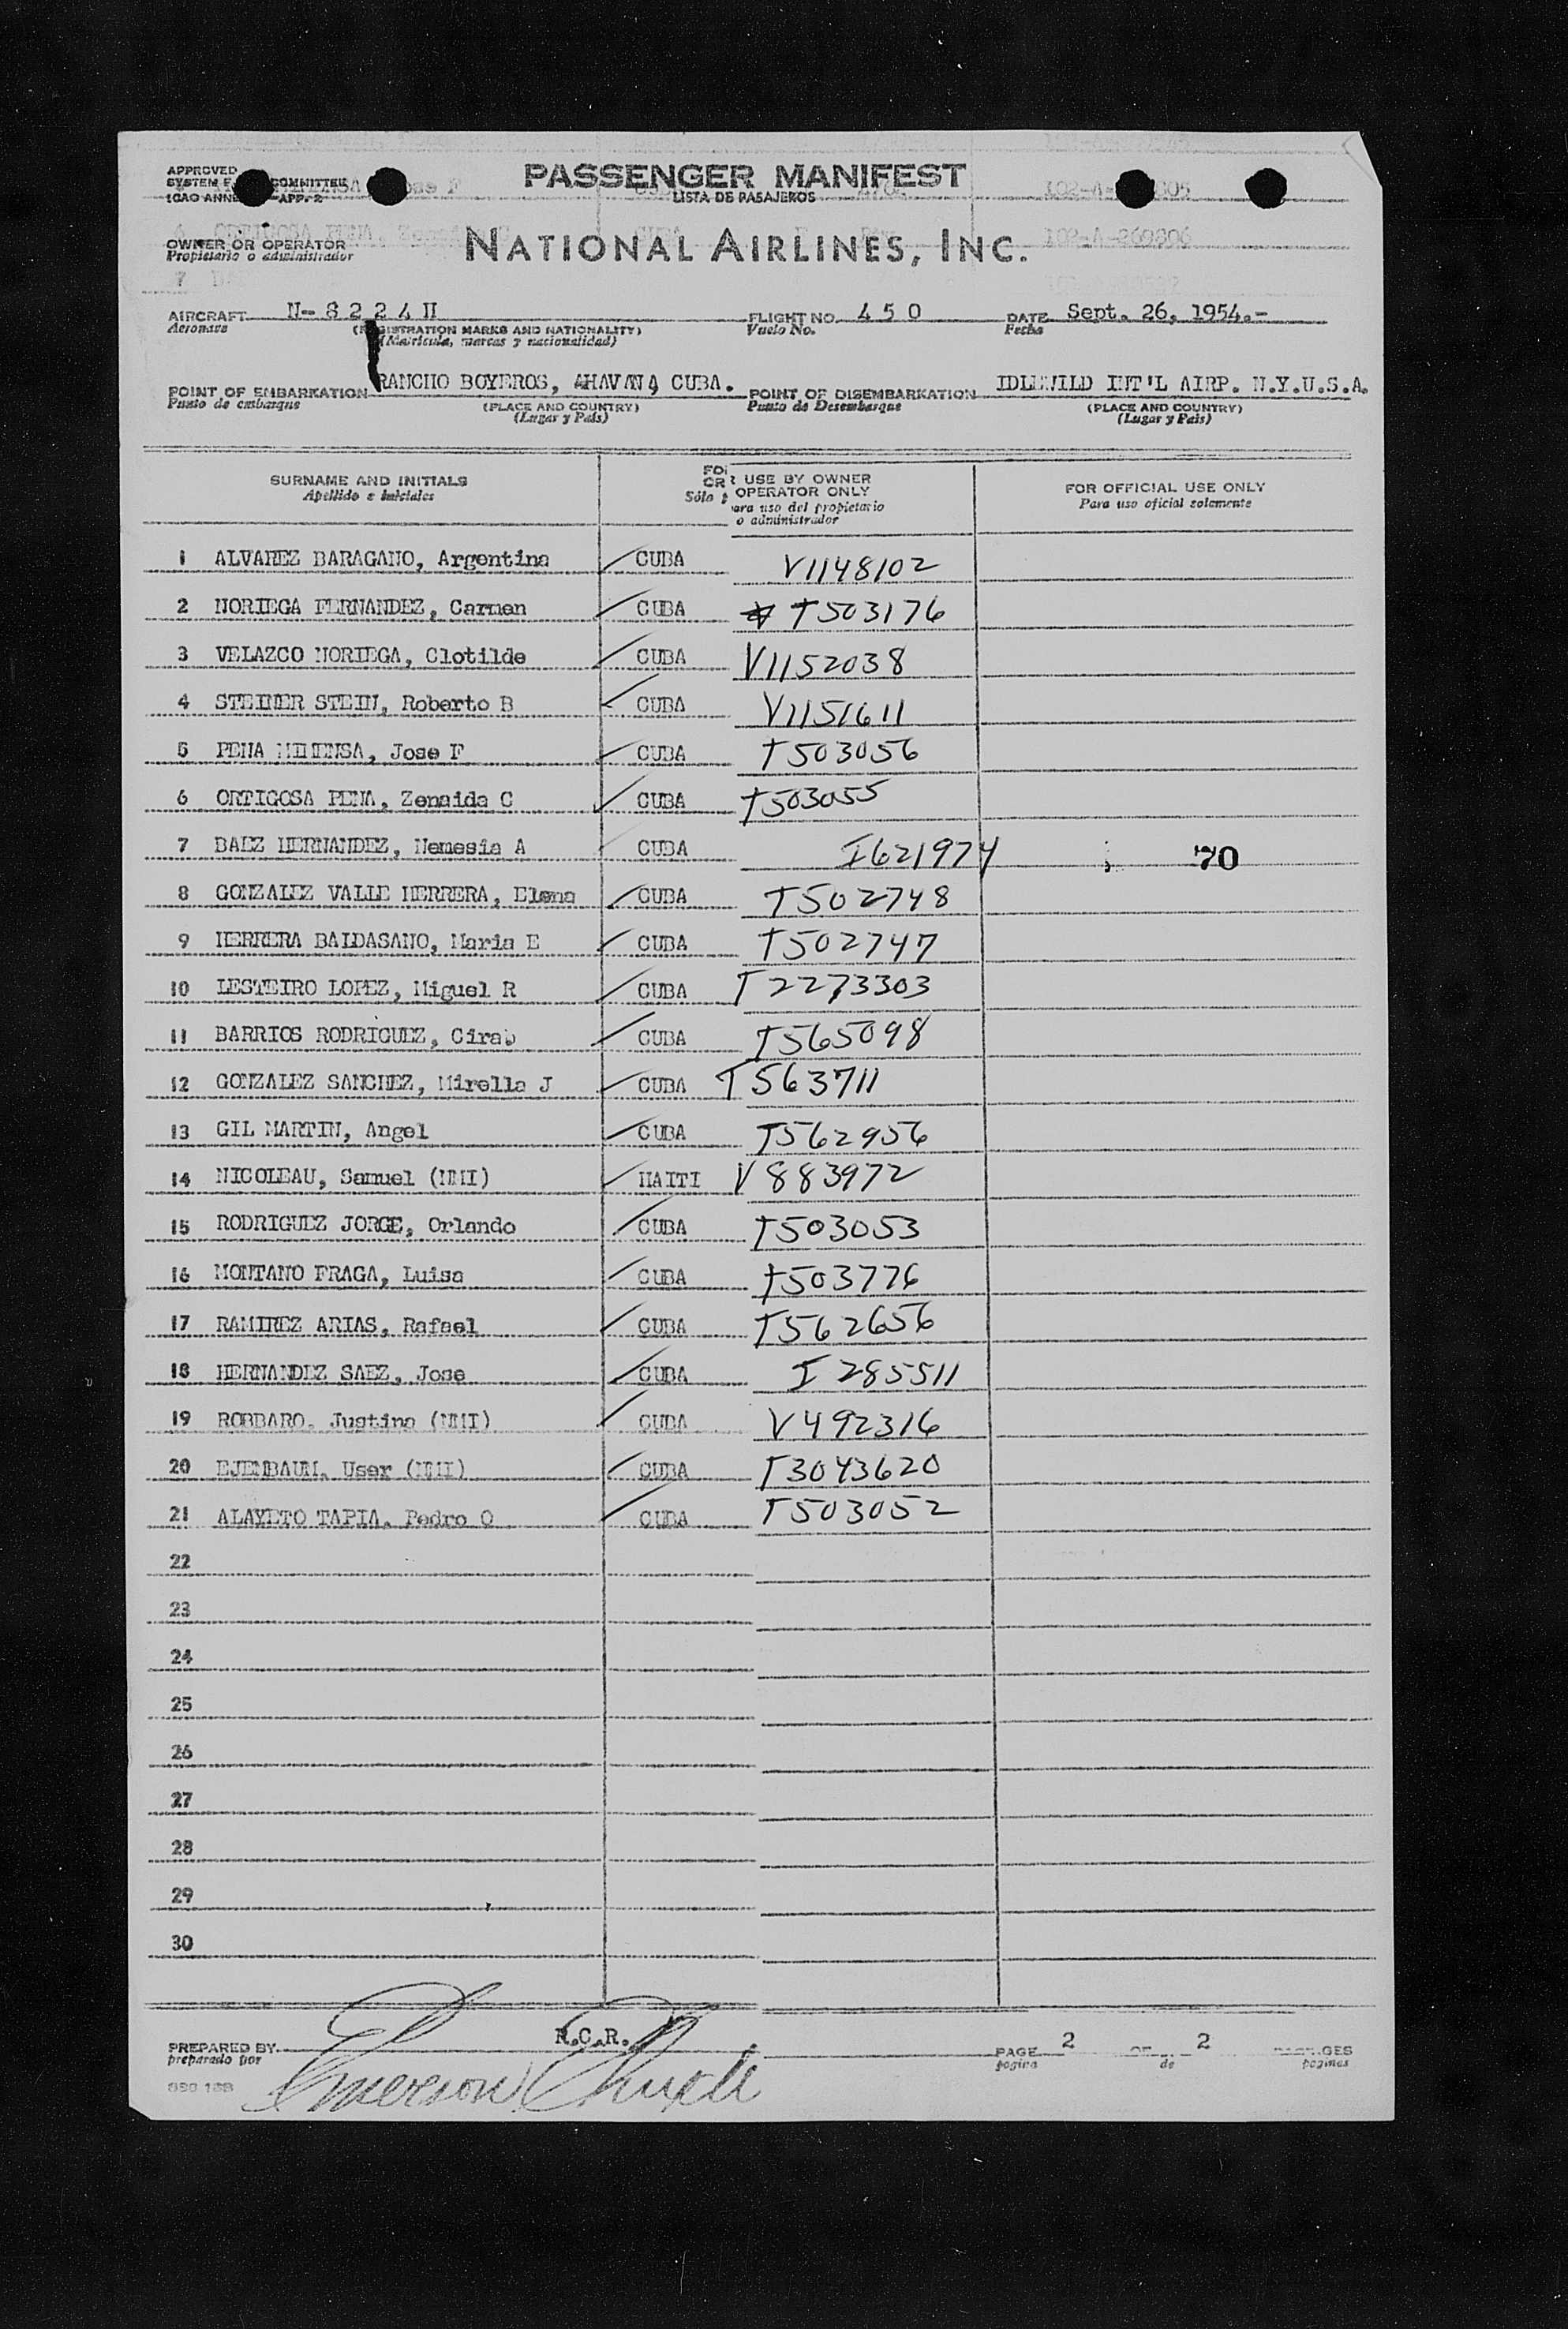 APPROVED
PASSENGER MANIFEST
SYSTEM F COMMITTEE
LISTA DE PASAJEROS
ICAO ANNE APP. 2
OWNER OR OPERATOR
Propietario o administrador
NATIONAL AIRLINES, INC.
AIRCRAFT N-8224H FLIGHT NO. 450 DATE Sept. 26, 1954.-
Aeronave (REGISTRATION MARKS AND NATIONALITY) Vuelo No. Fecha
(Matrícula, marcas y nacionalidad)
POINT OF EMBARKATION RANCHO BOYEROS, AHAVANA, CUBA. POINT OF DISEMBARKATION IDLEWILD INT'L AIRP. N.Y.U.S.A.
Punto de embarque (PLACE AND COUNTRY) Punto de Desembarque (PLACE AND COUNTRY)
(Lugar y País) (Lugar y País)
SURNAME AND INITIALS
Apellido e iniciales
FOR USE BY OWNER
OR OPERATOR ONLY
Sólo para uso del propietario
o administrador
FOR OFFICIAL USE ONLY
Para uso oficial solamente
1 ALVAREZ BARAGANO, Argentina CUBA V1148102
2 NORIEGA FERNANDEZ, Carmen CUBA T503176
3 VELAZCO NORIEGA, Clotilde CUBA V1152038
4 STEINER STEIN, Roberto B CUBA V1151611
5 PENA Jose F CUBA T503056
6 ORTIGOSA PENA, Zenaida C CUBA T503055
7 BAEZ HERNANDEZ, Nemesia A CUBA I621974 70
8 GONZALEZ VALLE HERRERA, Elena CUBA T502748
9 HERRERA BALDASANO, Maria E CUBA T502747
10 LESTEIRO LOPEZ, Miguel R CUBA T2273303
11 BARRIOS RODRIGUEZ, CUBA T565098
12 GONZALEZ SANCHEZ, Mirella J CUBA T563711
13 GIL MARTIN, Angel CUBA T562956
14 NICOLEAU, Samuel (NMI) HAITI V883972
15 RODRIGUEZ JORGE, Orlando CUBA T503053
16 MONTANO FRAGA, Luisa CUBA T503776
17 RAMIREZ ARIAS, Rafael CUBA T562656
18 HERNANDEZ SAEZ, Jose CUBA I285511
19 ROBBARO, Justina (NMI) CUBA V492316
20 EJENBAUM, User (NMI) CUBA T3043620
21 ALAYETO TAPIA, Pedro O CUBA T503052
22
23
24
25
26
27
28
29
30
PREPARED BY R.C.R. PAGE 2 OF 2 PAGES
preparado por página de páginas
Emerson